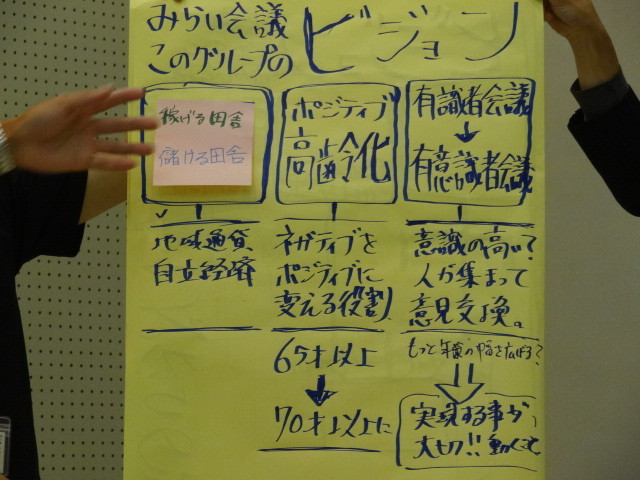 みらい会議
このグループの
ビジョン
稼げる田舎
儲ける田舎
地域通貨
自立経済
ポジティブ
高齢化
ネガティブを
ポジティブに
変える役割
65才以上
↓
70才以上に
有識者会議
↓
有意識者会議
意識の高い?
人が集まって
意見交換。
もっと年齢の
を広げる?
⇩
実現する事が
大切!!